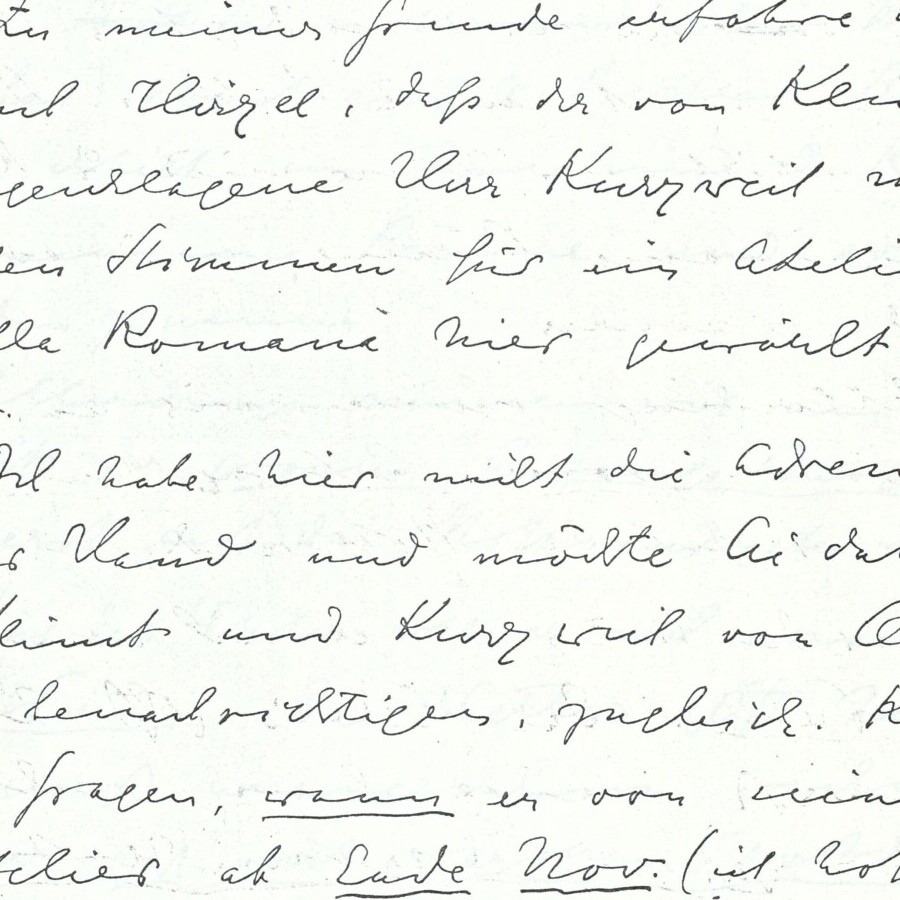 Zu meiner Freude erfahre
Hirzel, daß der von
Herr Kurzweil
Stimmen für ein Ateli
lla Romana hier gewählt
Ich habe hier nicht die Adress
Hand und möchte Sie
Klimt und Kurzweil von
benachrichtigen, zugleich. K
fragen, wann er von sein
telier ab Ende Nov. (ich